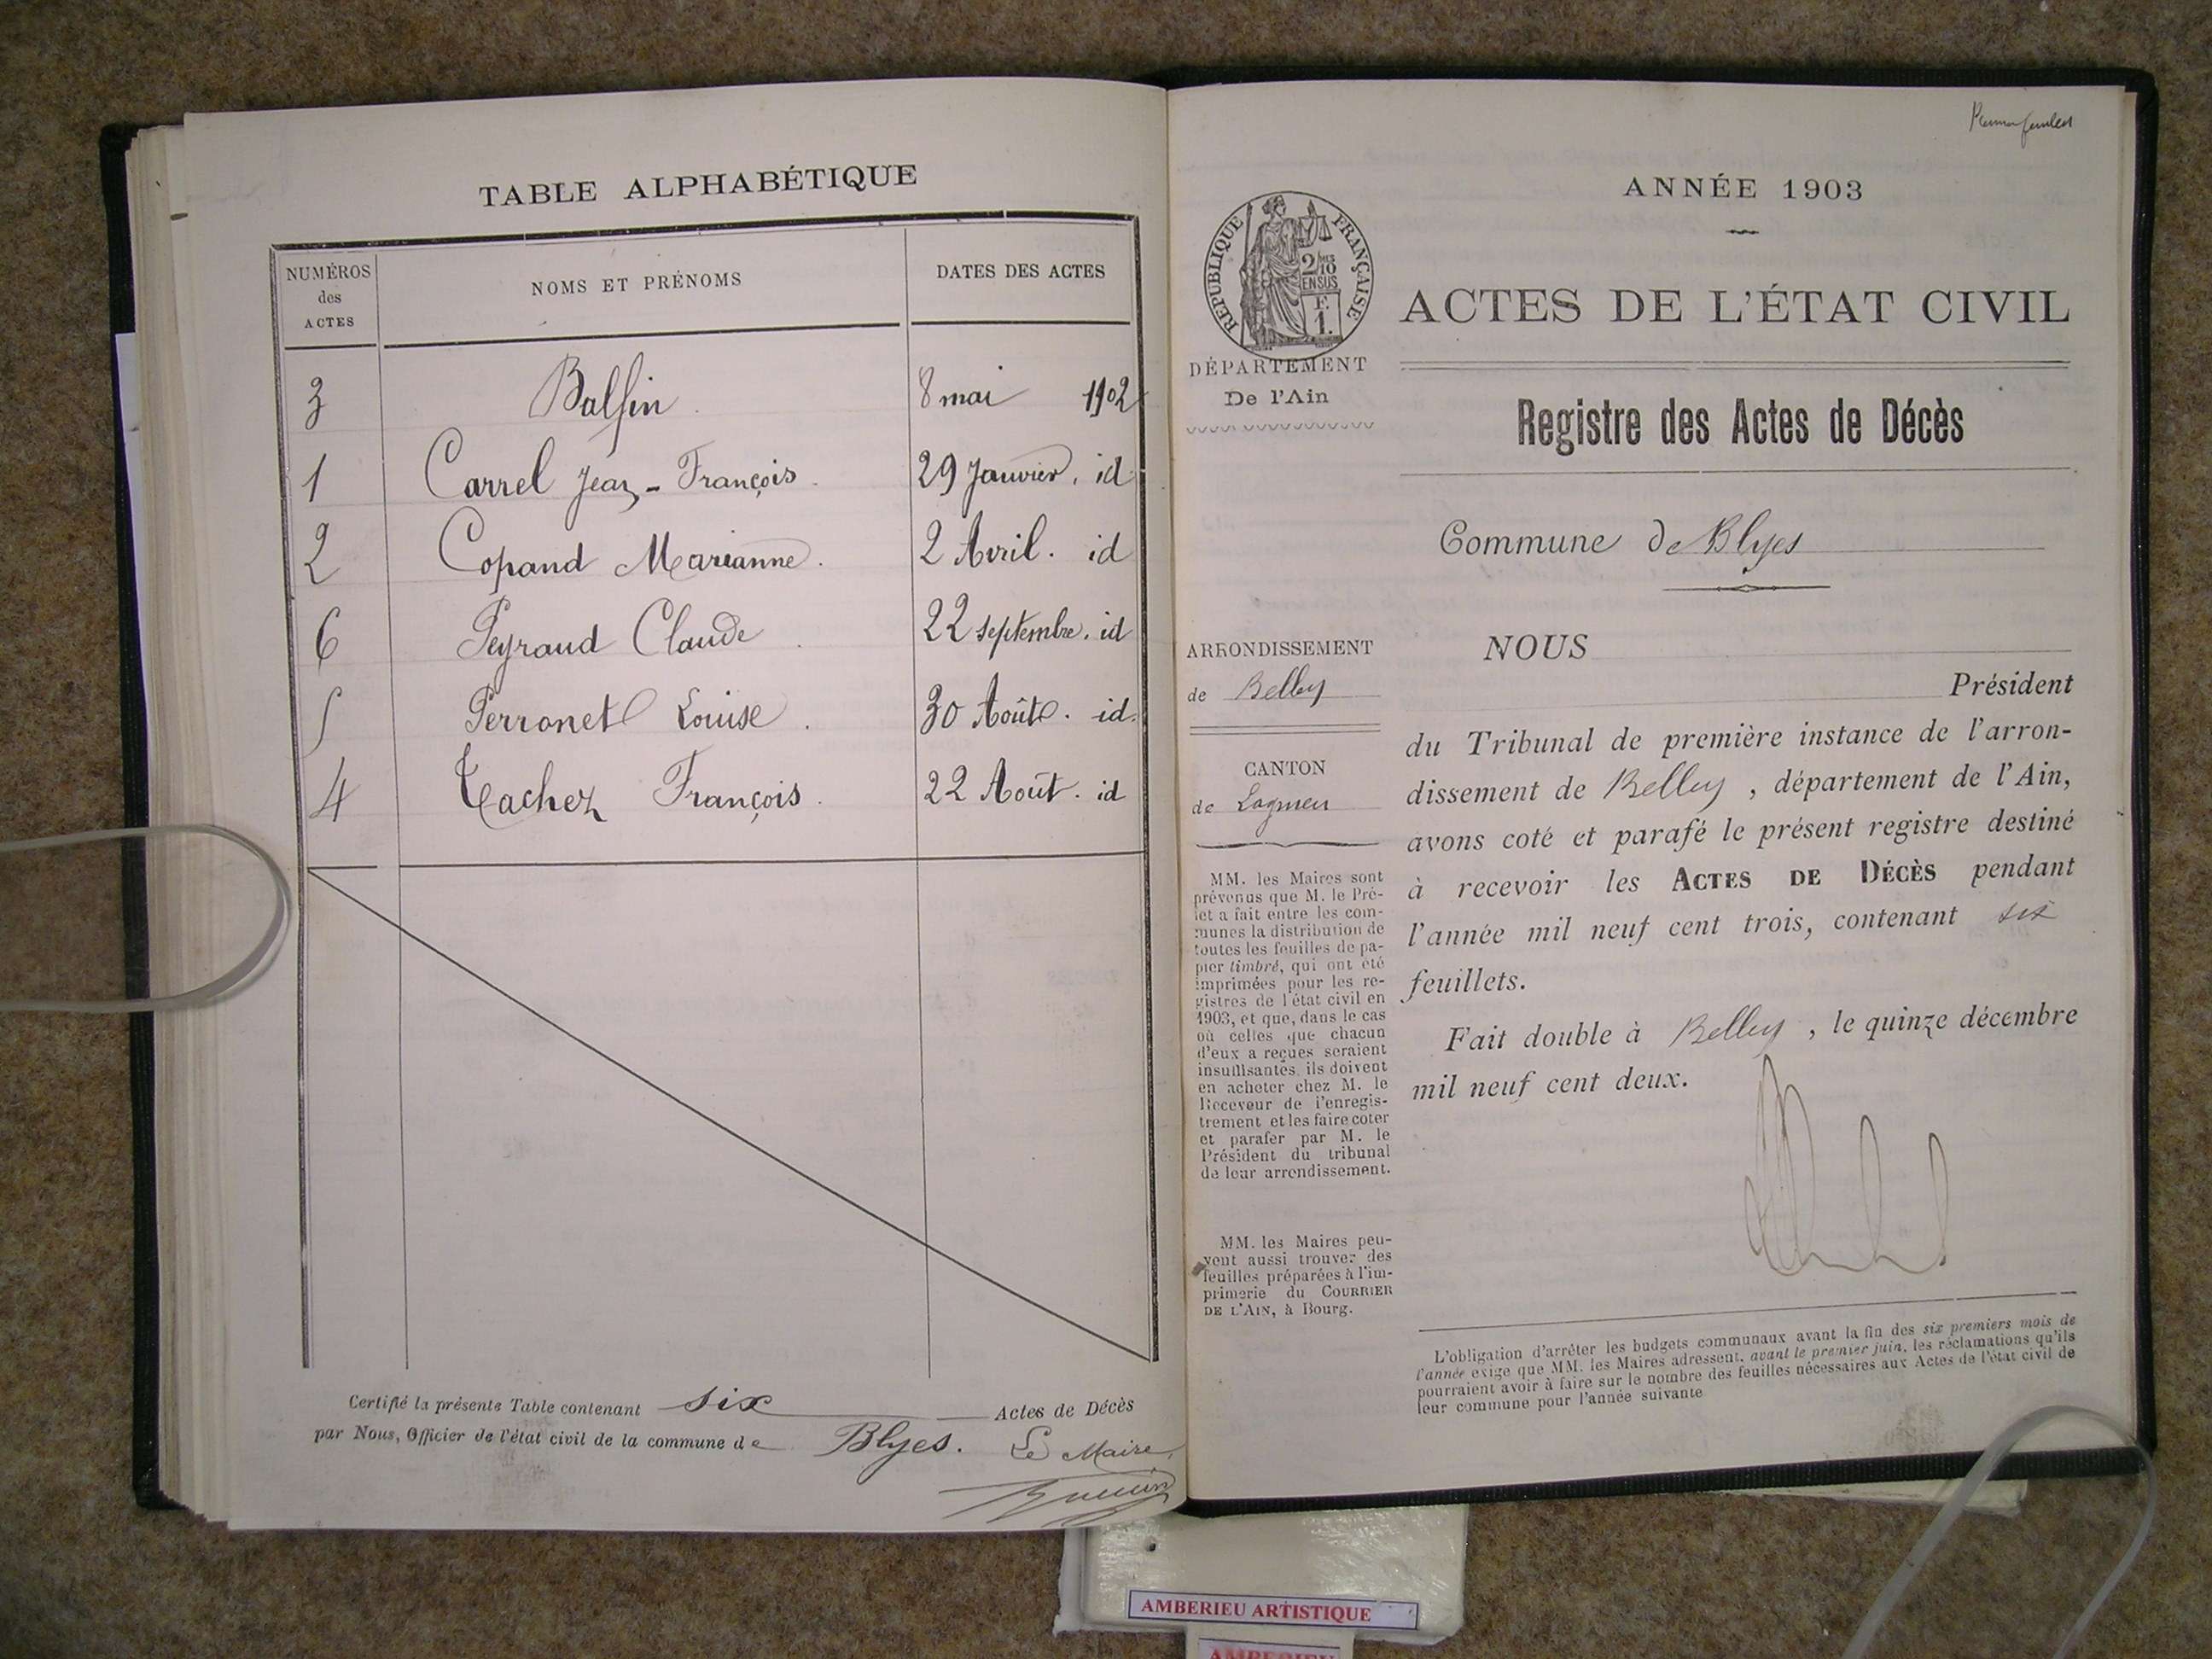 TABLE ALPHABÉTIQUE
NUMÉROS des ACTES
NOMS ET PRÉNOMS
DATES DES ACTES
3 Balfin 8 mai 1902
1 Carrel Jean-François 29 Janvier. id
2 Copand Marianne. 2 Avril. id
6 Peyraud Claude 22 septembre. id
5 Perronet Louise. 30 Août. id.
4 Tachez François. 22 Août. id
Certifié la présente Table contenant six Actes de Décès
par Nous, Officier de l'état civil de la commune de Blyes. Le Maire,
Premier feuillet
ANNÉE 1903
RÉPUBLIQUE FRANÇAISE
2/10 EN SUS
F. 1.
ACTES DE L'ÉTAT CIVIL
DÉPARTEMENT
De l'Ain
Registre des Actes de Décès
Commune de Blyes
ARRONDISSEMENT
de Belley
CANTON
de Lagnieu
MM. les Maires sont
prévenus que M. le Pré-
fet a fait entre les com-
munes la distribution de
toutes les feuilles de pa-
pier timbré, qui ont été
imprimées pour les re-
gistres de l'état civil en
1903, et que, dans le cas
où celles que chacun
d'eux a reçues seraient
insuffisantes, ils doivent
en acheter chez M. le
Receveur de l'enregis-
trement et les faire coter
et parafer par M. le
Président du tribunal
de leur arrondissement.
MM. les Maires peu-
vent aussi trouver des
feuilles préparées à l'im-
primerie du COURRIER
DE L'AIN, à Bourg.
NOUS
Président
du Tribunal de première instance de l'arron-
dissement de Belley, département de l'Ain,
avons coté et parafé le présent registre destiné
à recevoir les ACTES DE DÉCÈS pendant
l'année mil neuf cent trois, contenant six
feuillets.
Fait double à Belley, le quinze décembre
mil neuf cent deux.
L'obligation d'arrêter les budgets communaux avant la fin des six premiers mois de
l'année exige que MM. les Maires adressent, avant le premier juin, les réclamations qu'ils
pourraient avoir à faire sur le nombre des feuilles nécessaires aux Actes de l'état civil de
leur commune pour l'année suivante
AMBERIEU ARTISTIQUE
AMBERIEU